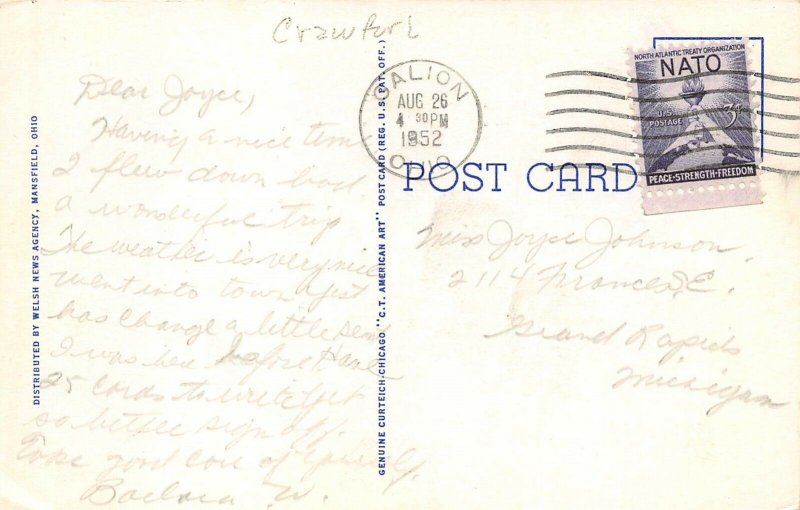 Crawford
Dear Joyce,
Having a nice time
I flew down had
a wonderful trip
The weather is very nice
went into town yest
has change a little since
I was here before Have
25 cards to write yet
so better sign off.
Take good care of yourself.
Barbara W.
DISTRIBUTED BY WELSH NEWS AGENCY, MANSFIELD, OHIO
GENUINE CURTEICH-CHICAGO "C.T. AMERICAN ART" POST CARD (REG. U.S. PAT. OFF.)
GALION
AUG 26
4 30 PM
1952
OHIO
POST CARD
NORTH ATLANTIC TREATY ORGANIZATION
NATO
U.S. POSTAGE
3¢
PEACE-STRENGTH-FREEDOM
Miss Joyce Johnson
2114 Frances S.E.
Grand Rapids
Michigan